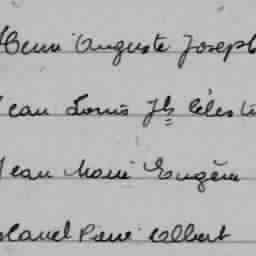 Henri Auguste Joseph
Jean Louis Jh Célesti
Jean Marie Eugène
Marcel Pierre Albert